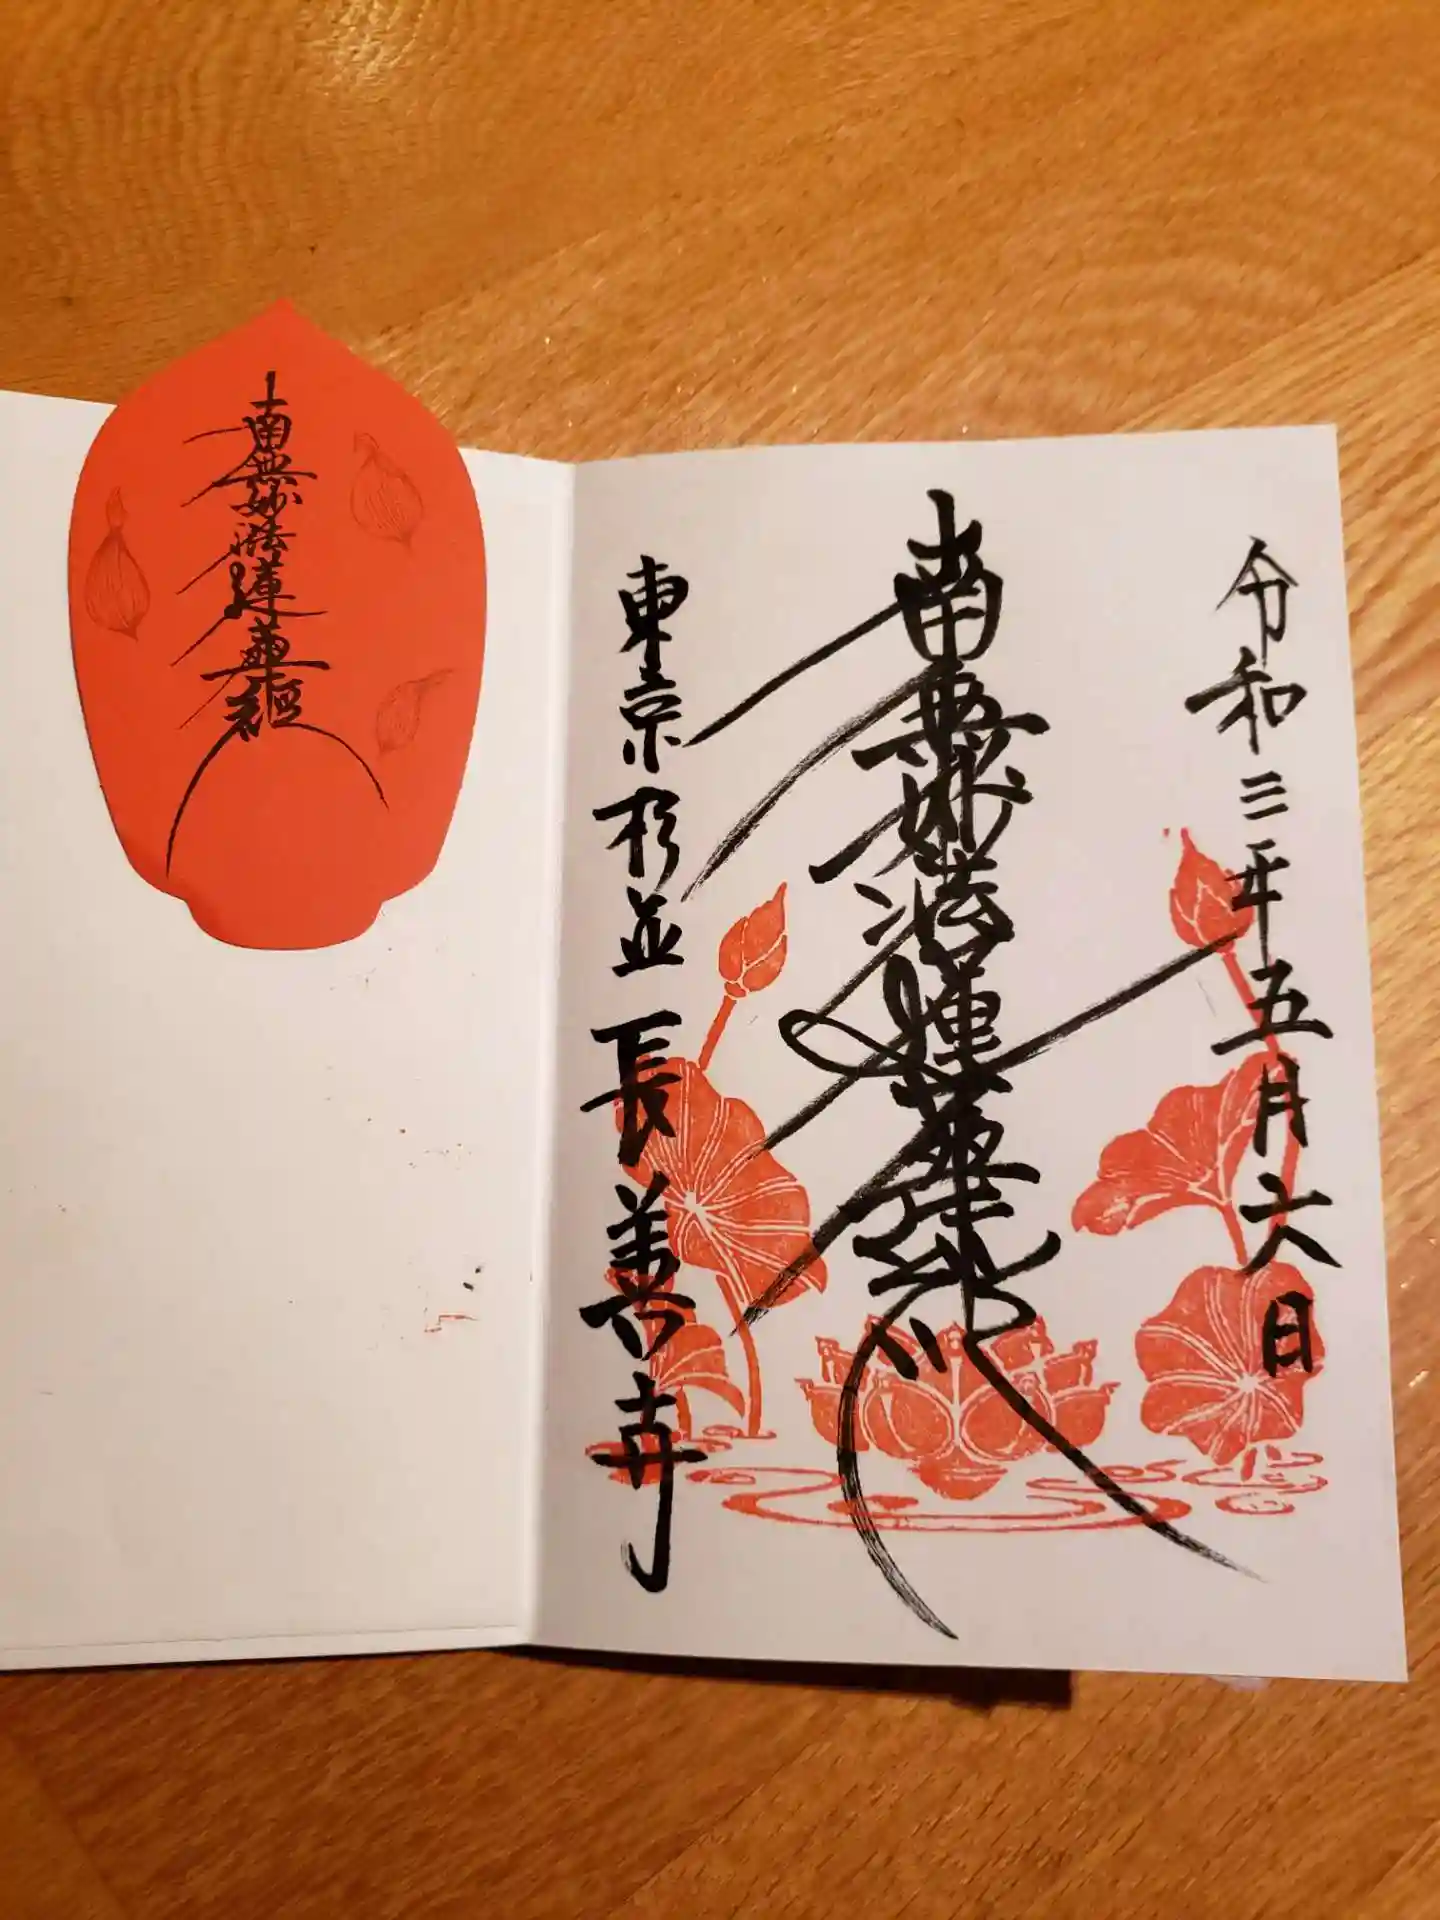 令和三年五月六日
南無妙法蓮華経
東京杉並 長善寺
南無妙法蓮華經